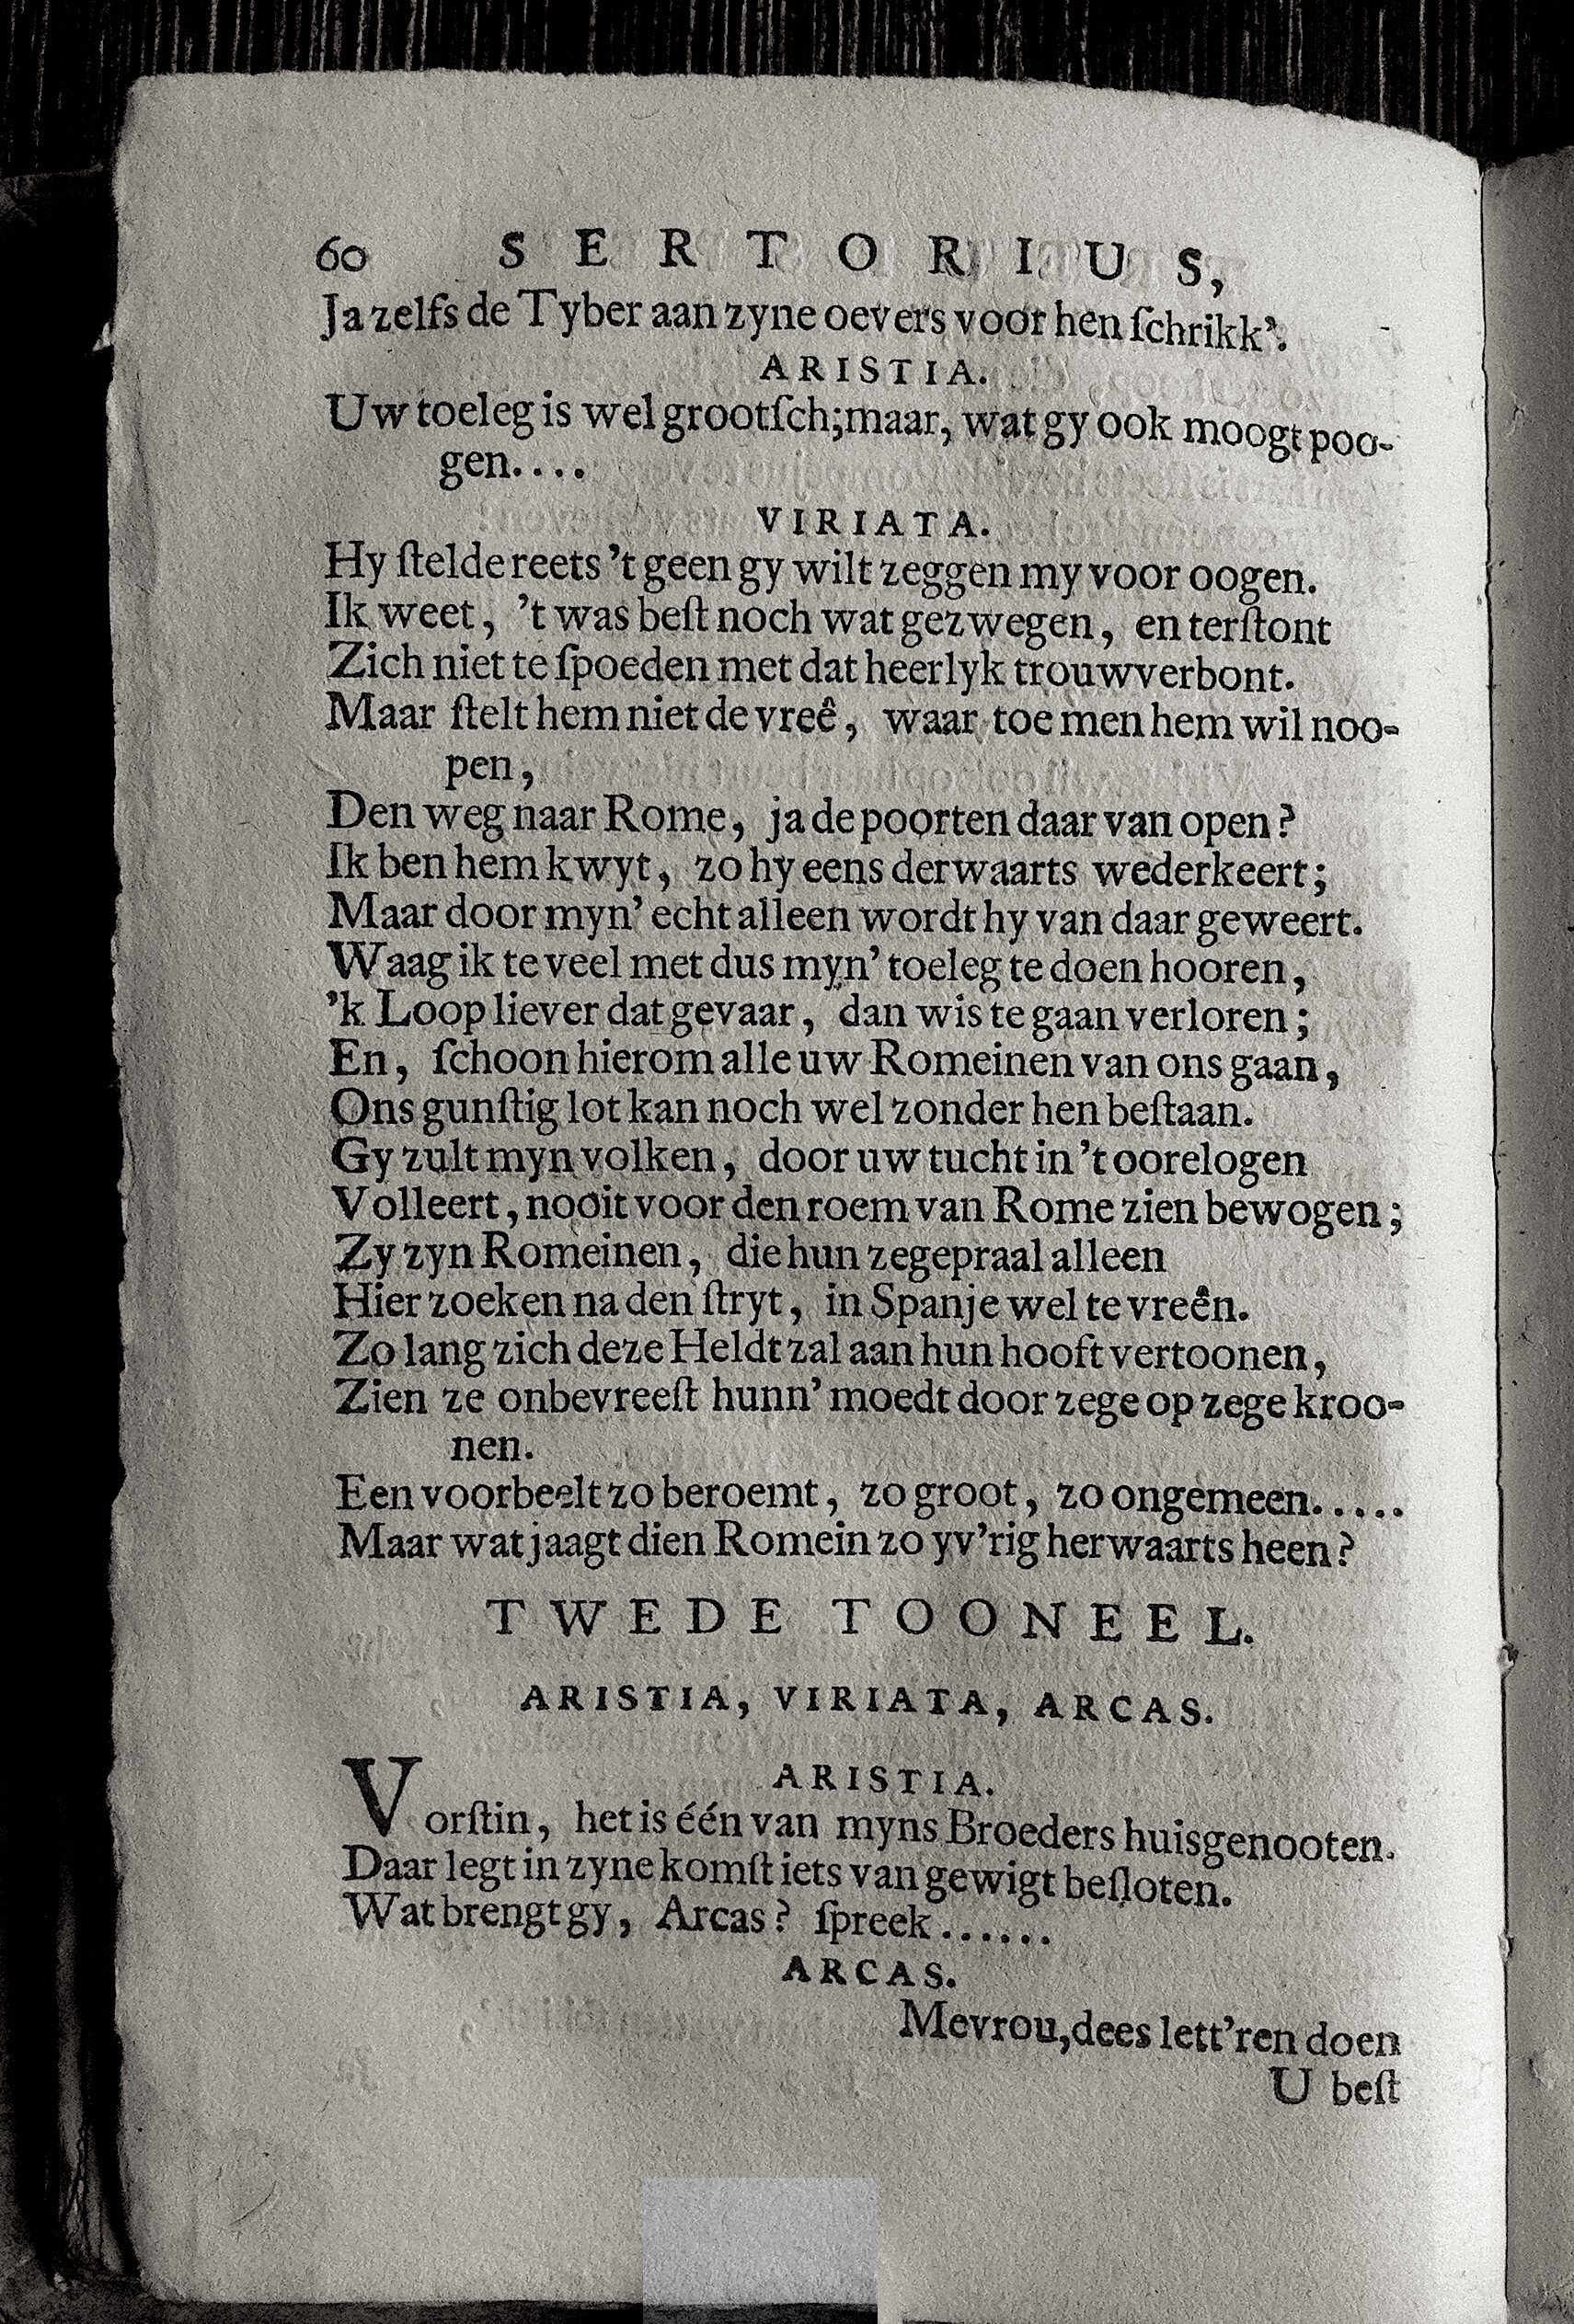 60 SERTORIUS,
Ja zelfs de Tyber aan zyne oevers voor hen ſchrikk'.
ARISTIA.
Uw toeleg is wel grootſch; maar, wat gy ook moogt poo-
gen....
VIRIATA.
Hy ſtelde reets 't geen gy wilt zeggen my voor oogen.
Ik weet, 't was beſt noch wat gezwegen, en terſtont
Zich niet te ſpoeden met dat heerlyk trouwverbont.
Maar ſtelt hem niet de vreê, waar toe men hem wil noo-
pen,
Den weg naar Rome, ja de poorten daar van open?
Ik ben hem kwyt, zo hy eens derwaarts wederkeert;
Maar door myn' echt alleen wordt hy van daar geweert.
Waag ik te veel met dus myn' toeleg te doen hooren,
'k Loop liever dat gevaar, dan wis te gaan verloren;
En, ſchoon hierom alle uw Romeinen van ons gaan,
Ons gunſtig lot kan noch wel zonder hen beſtaan.
Gy zult myn volken, door uw tucht in 't oorelogen
Volleert, nooit voor den roem van Rome zien bewogen;
Zy zyn Romeinen, die hun zegepraal alleen
Hier zoeken na den ſtryt, in Spanje wel te vreên.
Zo lang zich deze Heldt zal aan hun hooft vertoonen,
Zien ze onbevreeſt hunn' moedt door zege op zege kroo-
nen.
Een voorbeelt zo beroemt, zo groot, zo ongemeen.....
Maar wat jaagt dien Romein zo yv'rig herwaarts heen?
TWEDE TOONEEL.
ARISTIA, VIRIATA, ARCAS.
ARISTIA.
Vorſtin, het is één van myns Broeders huisgenooten.
Daar legt in zyne komſt iets van gewigt beſloten.
Wat brengt gy, Arcas? ſpreek......
ARCAS.
Mevrou, dees lett'ren doen
U beſt